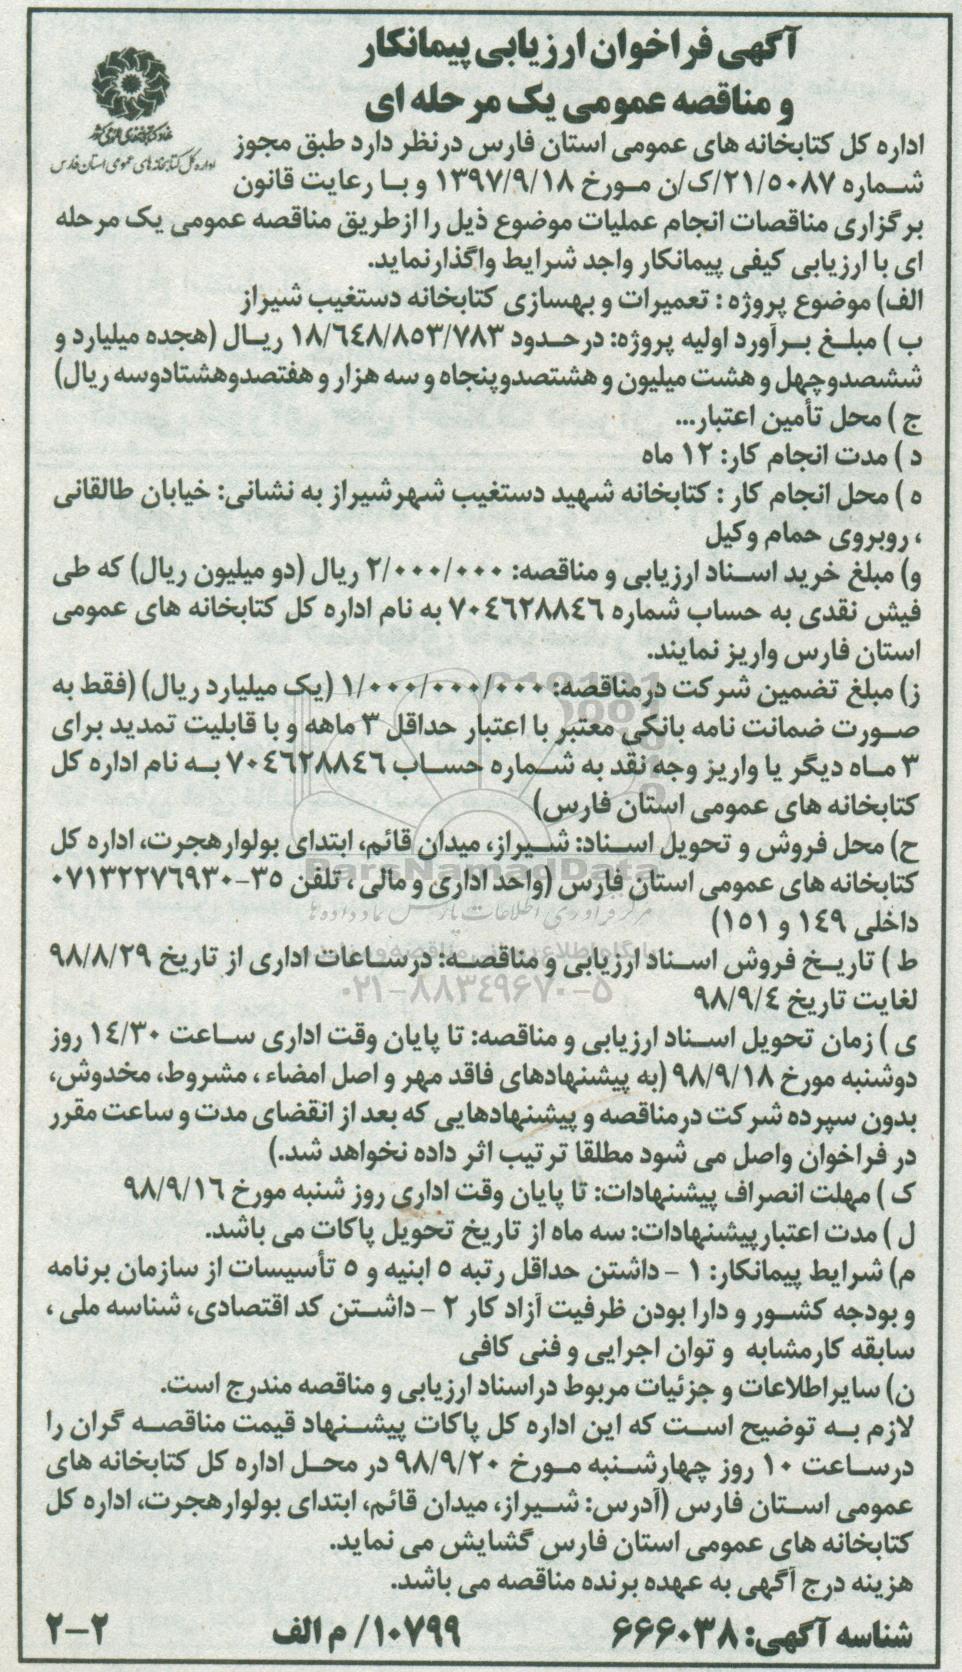 آگهی فراخوان ارزیابی پیمانکار
و مناقصه عمومی یک مرحله ای
نهاد کتابخانه‌های عمومی کشور
اداره کل کتابخانه‌های عمومی استان فارس
اداره کل کتابخانه های عمومی استان فارس درنظر دارد طبق مجوز
شماره ۲۱/۵۰۸۷/ک/ن مورخ ۱۳۹۷/۹/۱۸ و با رعایت قانون
برگزاری مناقصات انجام عملیات موضوع ذیل را ازطریق مناقصه عمومی یک مرحله
ای با ارزیابی کیفی پیمانکار واجد شرایط واگذارنماید.
الف) موضوع پروژه : تعمیرات و بهسازی کتابخانه دستغیب شیراز
ب ) مبلغ برآورد اولیه پروژه: درحدود ۱۸/۶۴۸/۸۵۳/۷۸۳ ریال (هجده میلیارد و
ششصدوچهل و هشت میلیون و هشتصدوپنجاه و سه هزار و هفتصدوهشتادوسه ریال)
ج ) محل تأمین اعتبار...
د ) مدت انجام کار: ۱۲ ماه
ه ) محل انجام کار : کتابخانه شهید دستغیب شهرشیراز به نشانی: خیابان طالقانی
، روبروی حمام وکیل
و) مبلغ خرید اسناد ارزیابی و مناقصه: ۲/۰۰۰/۰۰۰ ریال (دو میلیون ریال) که طی
فیش نقدی به حساب شماره ۷۰۴۶۲۸۸۴۶ به نام اداره کل کتابخانه های عمومی
استان فارس واریز نمایند.
ز) مبلغ تضمین شرکت درمناقصه: ۱/۰۰۰/۰۰۰/۰۰۰ (یک میلیارد ریال) (فقط به
صورت ضمانت نامه بانکی معتبر با اعتبار حداقل ۳ ماهه و با قابلیت تمدید برای
۳ ماه دیگر یا واریز وجه نقد به شماره حساب ۷۰۴۶۲۸۸۴۶ به نام اداره کل
کتابخانه های عمومی استان فارس)
ح) محل فروش و تحویل اسناد: شیراز، میدان قائم، ابتدای بولوارهجرت، اداره کل
ParsNamadData
کتابخانه های عمومی استان فارس (واحد اداری و مالی ، تلفن ۳۵-۰۷۱۳۲۲۷۶۹۳۰
مرکز فرآوری اطلاعات پارس نماد داده ها
داخلی ۱۴۹ و ۱۵۱)
ط ) تاریخ فروش اسناد ارزیابی و مناقصه: درساعات اداری از تاریخ ۹۸/۸/۲۹
۰۲۱-۸۸۳۴۹۶۷۰-۵
لغایت تاریخ ۹۸/۹/۴
ی ) زمان تحویل اسناد ارزیابی و مناقصه: تا پایان وقت اداری ساعت ۱۴/۳۰ روز
دوشنبه مورخ ۹۸/۹/۱۸ (به پیشنهادهای فاقد مهر و اصل امضاء ، مشروط، مخدوش،
بدون سپرده شرکت درمناقصه و پیشنهادهایی که بعد از انقضای مدت و ساعت مقرر
در فراخوان واصل می شود مطلقا ترتیب اثر داده نخواهد شد.)
ک ) مهلت انصراف پیشنهادات: تا پایان وقت اداری روز شنبه مورخ ۹۸/۹/۱۶
ل ) مدت اعتبارپیشنهادات: سه ماه از تاریخ تحویل پاکات می باشد.
م) شرایط پیمانکار: ۱ - داشتن حداقل رتبه ۵ ابنیه و ۵ تأسیسات از سازمان برنامه
و بودجه کشور و دارا بودن ظرفیت آزاد کار ۲ - داشتن کد اقتصادی، شناسه ملی ،
سابقه کارمشابه و توان اجرایی و فنی کافی
ن) سایراطلاعات و جزئیات مربوط دراسناد ارزیابی و مناقصه مندرج است.
لازم به توضیح است که این اداره کل پاکات پیشنهاد قیمت مناقصه گران را
درساعت ۱۰ روز چهارشنبه مورخ ۹۸/۹/۲۰ در محل اداره کل کتابخانه های
عمومی استان فارس (آدرس: شیراز، میدان قائم، ابتدای بولوارهجرت، اداره کل
کتابخانه های عمومی استان فارس گشایش می نماید.
هزینه درج آگهی به عهده برنده مناقصه می باشد.
شناسه آگهی: ۶۶۶۰۳۸ ۱۰۷۹۹/ م الف ۲-۲